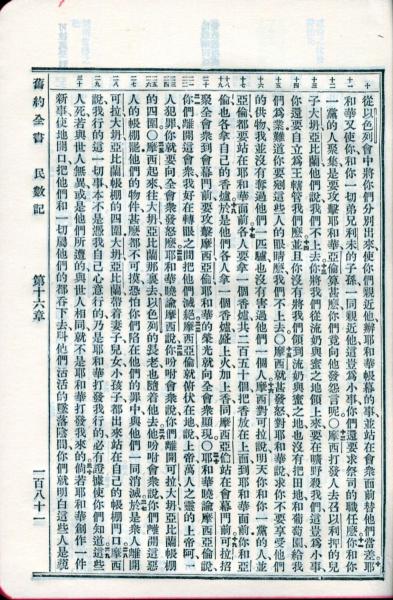 從以色列會中將你們分別出來使你們親近他辦耶和華帳幕的事並站在會衆面前替他們當差耶
和華又使你和你一切弟兄利未的子孫一同親近他這豈為小事你們還要求祭司的職任麼你和你
一黨的人聚集是要攻擊耶和華亞倫算甚麼你們竟向他發怨言呢〇摩西打發人去召以利押的兒
子大坍亞比蘭他們說我們不上去你將我們從流奶與蜜之地領上來要在曠野殺我們這豈為小事
你還要自立為王轄管我們麼並且你沒有將我們領到流奶與蜜之地也沒有把田地和葡萄園給我
們為業難道你要剜這些人的眼睛麼我們不上去〇摩西就甚發怒對耶和華說求你不要享受他們
的供物我並沒有奪過他們一匹驢也沒有害過他們一個人摩西對可拉說明天你和你一黨的人並
亞倫都要站在耶和華面前各人要拿一個香爐共二百五十個把香放在上面到耶和華面前你和亞
倫也各拿自己的香爐於是他們各人拿一個香爐盛上火加上香同摩西亞倫站在會幕門前可拉招
聚全會衆到會幕門前要攻擊摩西亞倫耶和華的榮光就向全會衆顯現〇耶和華曉諭摩西亞倫說
你們離開這會衆我好在轉眼之間把他們滅絕摩西亞倫就俯伏在地說上帝萬人之靈的上帝阿一
人犯罪你就要向全會衆發怒麼耶和華曉諭摩西說你吩咐會衆說你們離開可拉大坍亞比蘭帳棚
的四圍〇摩西起來往大坍亞比蘭那裏去以色列的長老也隨着他去他吩咐會衆說你們離開這惡
人的帳棚罷他們的物件甚麼都不可摸恐怕你們陷在他們的罪中與他們一同消滅於是衆人離開
可拉大坍亞比蘭帳棚的四圍大坍亞比蘭帶着妻子兒女小孩子都出來站在自己的帳棚門口摩西
說我行的這一切事本不是憑我自己心意行的乃是耶和華打發我行的必有證據使你們知道這些
人死若與世人無異或是他們所遭的與世人相同就不是耶和華打發我來的倘若耶和華創作一件
新事使地開口把他們和一切屬他們的都吞下去叫他們活活的墜落陰間你們就明白這些人是藐
舊約全書 民數記 第十六章 一百八十一